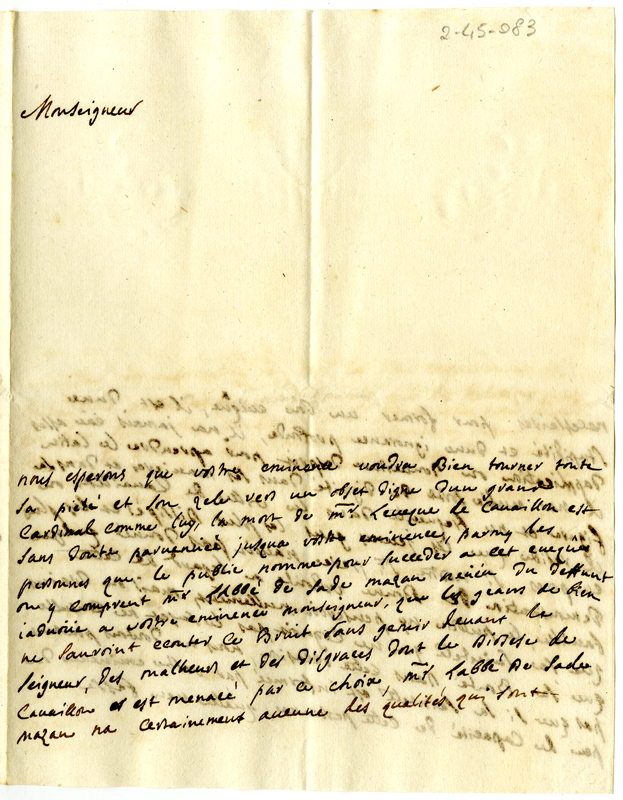 2-45-083
Monseigneur
nous esperons que vostre eminence voudra Bien tourner toute
sa pieté et son Zele vers un objet digne d'un grand
Cardinal comme luy, la mort de mr Leveque de Cavaillon est
sans doute parvenüe jusqua vostre eminence, parmy les
personnes que le public nomme pour succeder a cet eveque
on y comprent mr Labbé de Sade mazan neveu du deffunt
iadvoüe a vostre eminence monseigneur, que les geans de bien
ne sauroint ecouter ce Bruit sans gemir devant le
seigneur, des malheurs et des disgraces dont le diocese de
Cavaillon est menacé par ce choix, mr Labbé de Sade
mazan na certainement aucune des qualités qui sont